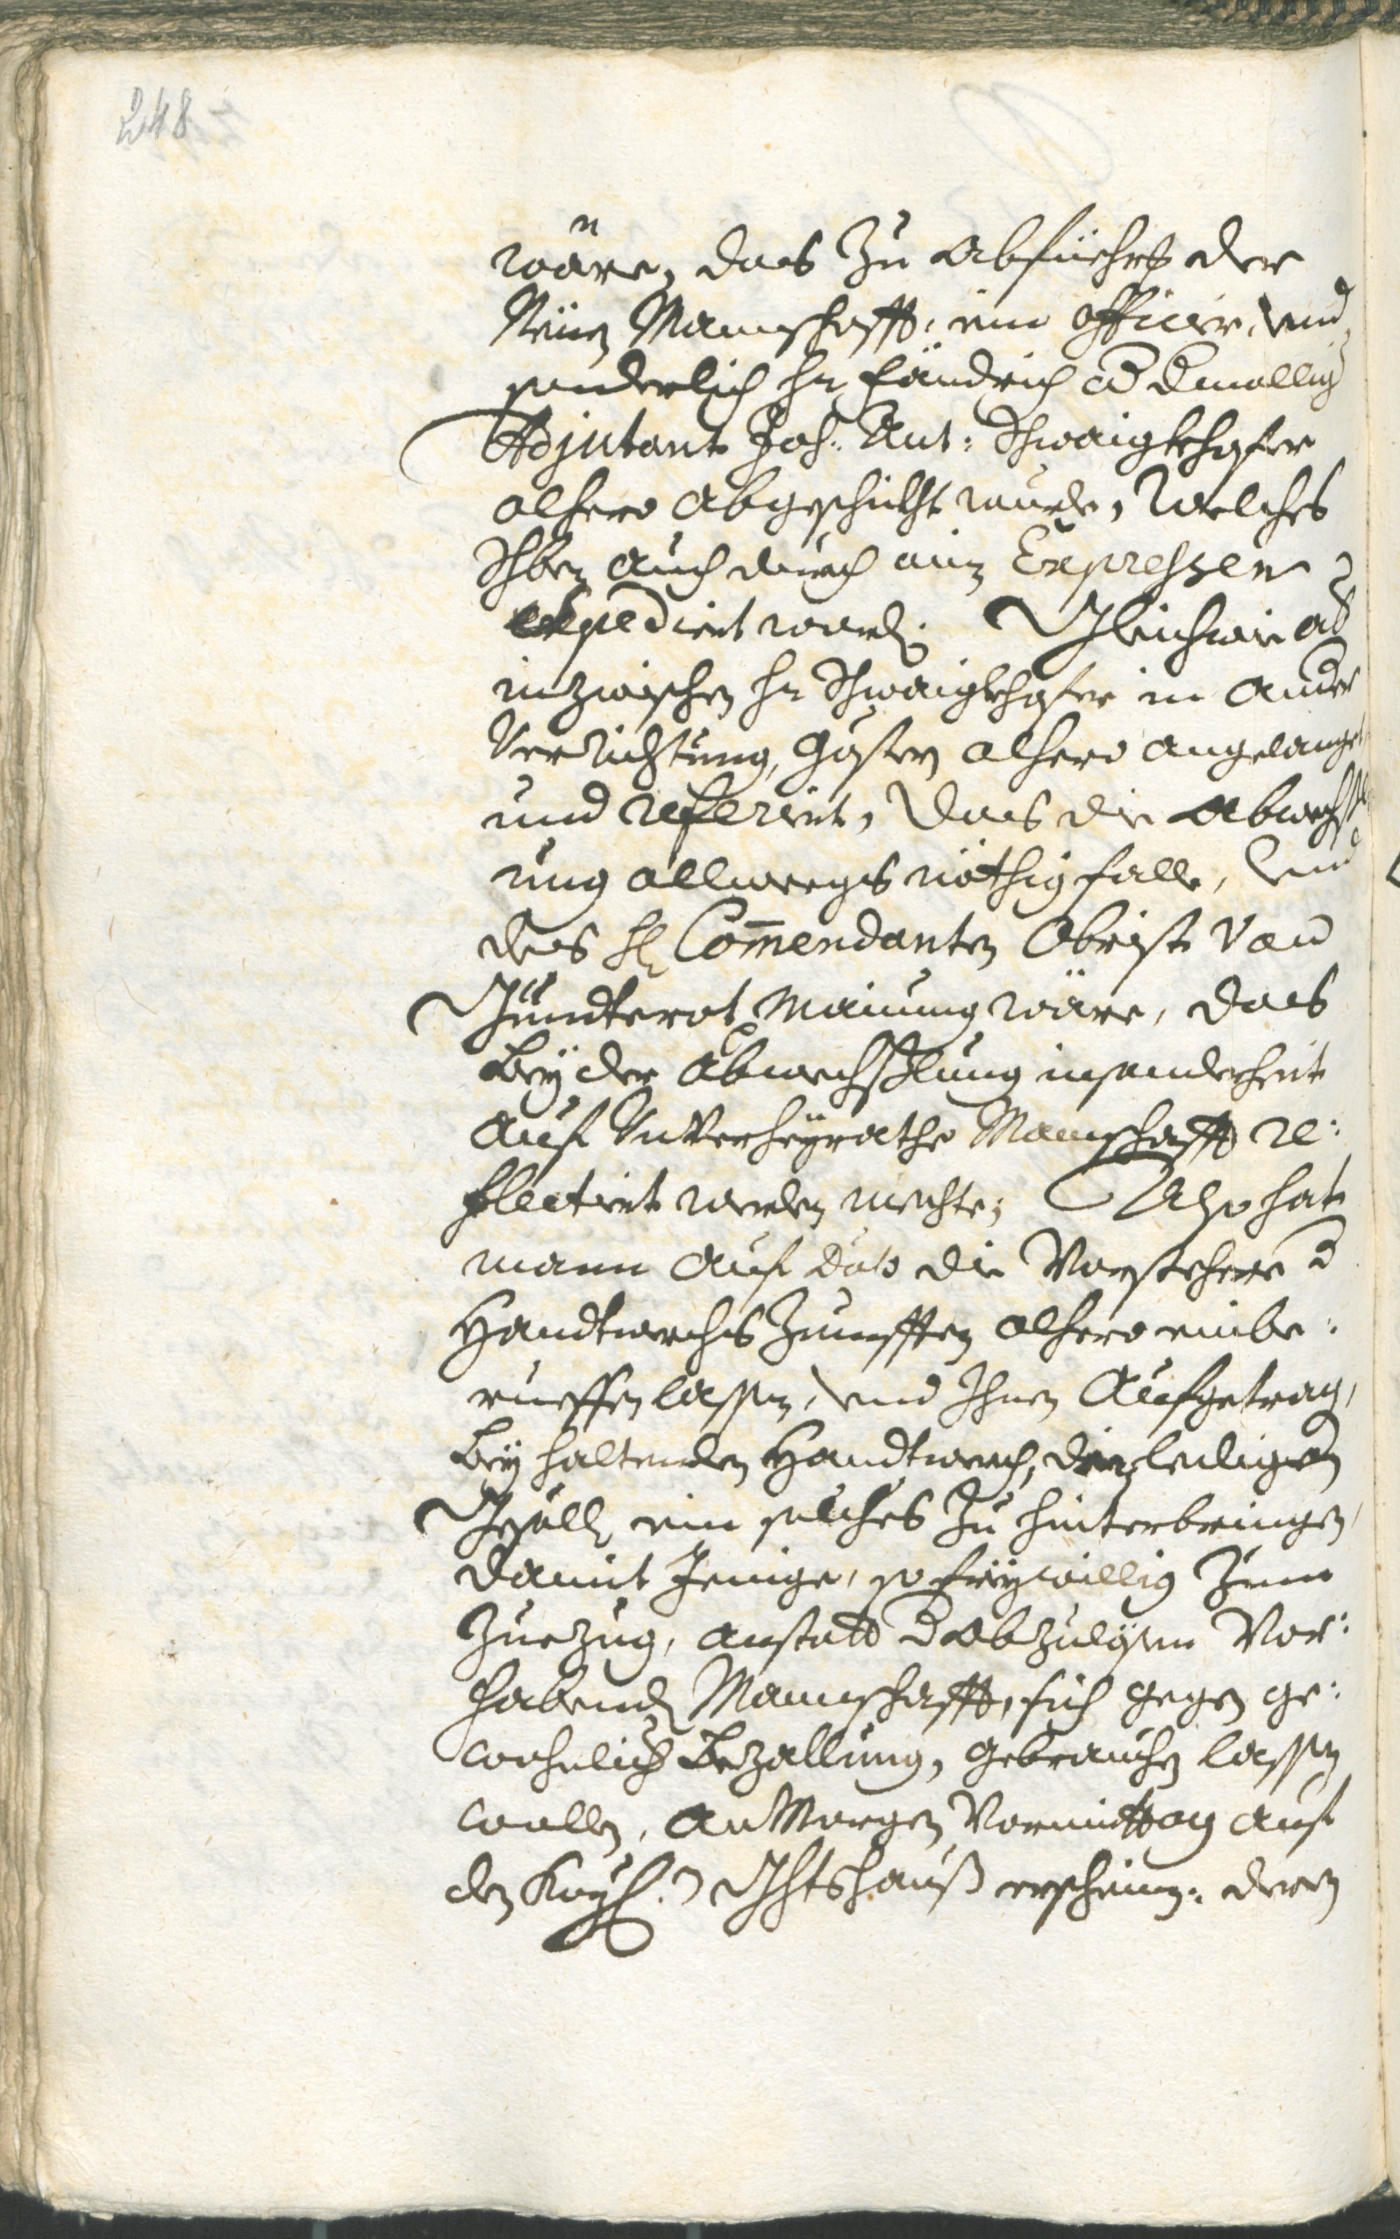 248
wäre, das zu Abführß der
Neüen Mannschafft, ein Officir, und
sonderlich Hr. Fändrich
Adjutant Joh: Ant: Schwaigkhofer
alhero abgeschickht wurde, welches
auch durch ain Expressen
expedirt worden. Gleichwie aber
inzwischen Hr. Schwaigkhofer in ander
Verrichtung, gestern alhero angelanget
und referirt, das die Abwechsl
ung allweegs nöthig falle, und
des H. Com̄endanten Obrist von
Gündterot Mainung wäre, das
bey der Abwechßlung insonderheit
auf Unverheyrathe Mannschafft re:
flectirt werden mechte; Also hat
mann auf dato die Vorstehere d
Handtwerchs Zunfften alhero einbe:
rueffen lassen, und Ihnen aufgetragen,
bey haltenden Handtwerch, den ledigen
Gesellen ein solches zu hinterbringen,
damit Jenige, so freywillig zum
Zuezug, anstatt d abzulesen vor:
habenden Mannschafft, sich gegen ge:
wohnlich Bezallung, gebrauchen lassen
wollen, an Morgen Vormittag auf
den Kayß. Ghtshauß erscheinen: deren